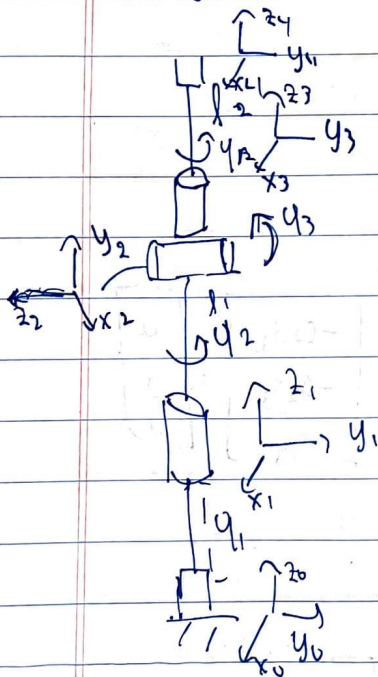 z4
y4
x4
l2
z3
y3
x3
q3
y2
z2
x2
l1
q2
z1
y1
x1
q1
z0
y0
x0